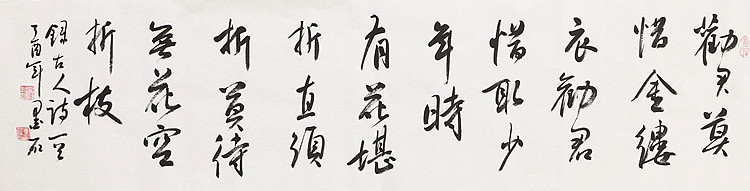 勸君莫
惜金縷
衣勸君
惜取少
年時
有花堪
折直須
折莫待
無花空
折枝
錄古人詩一首
丁酉年墨石